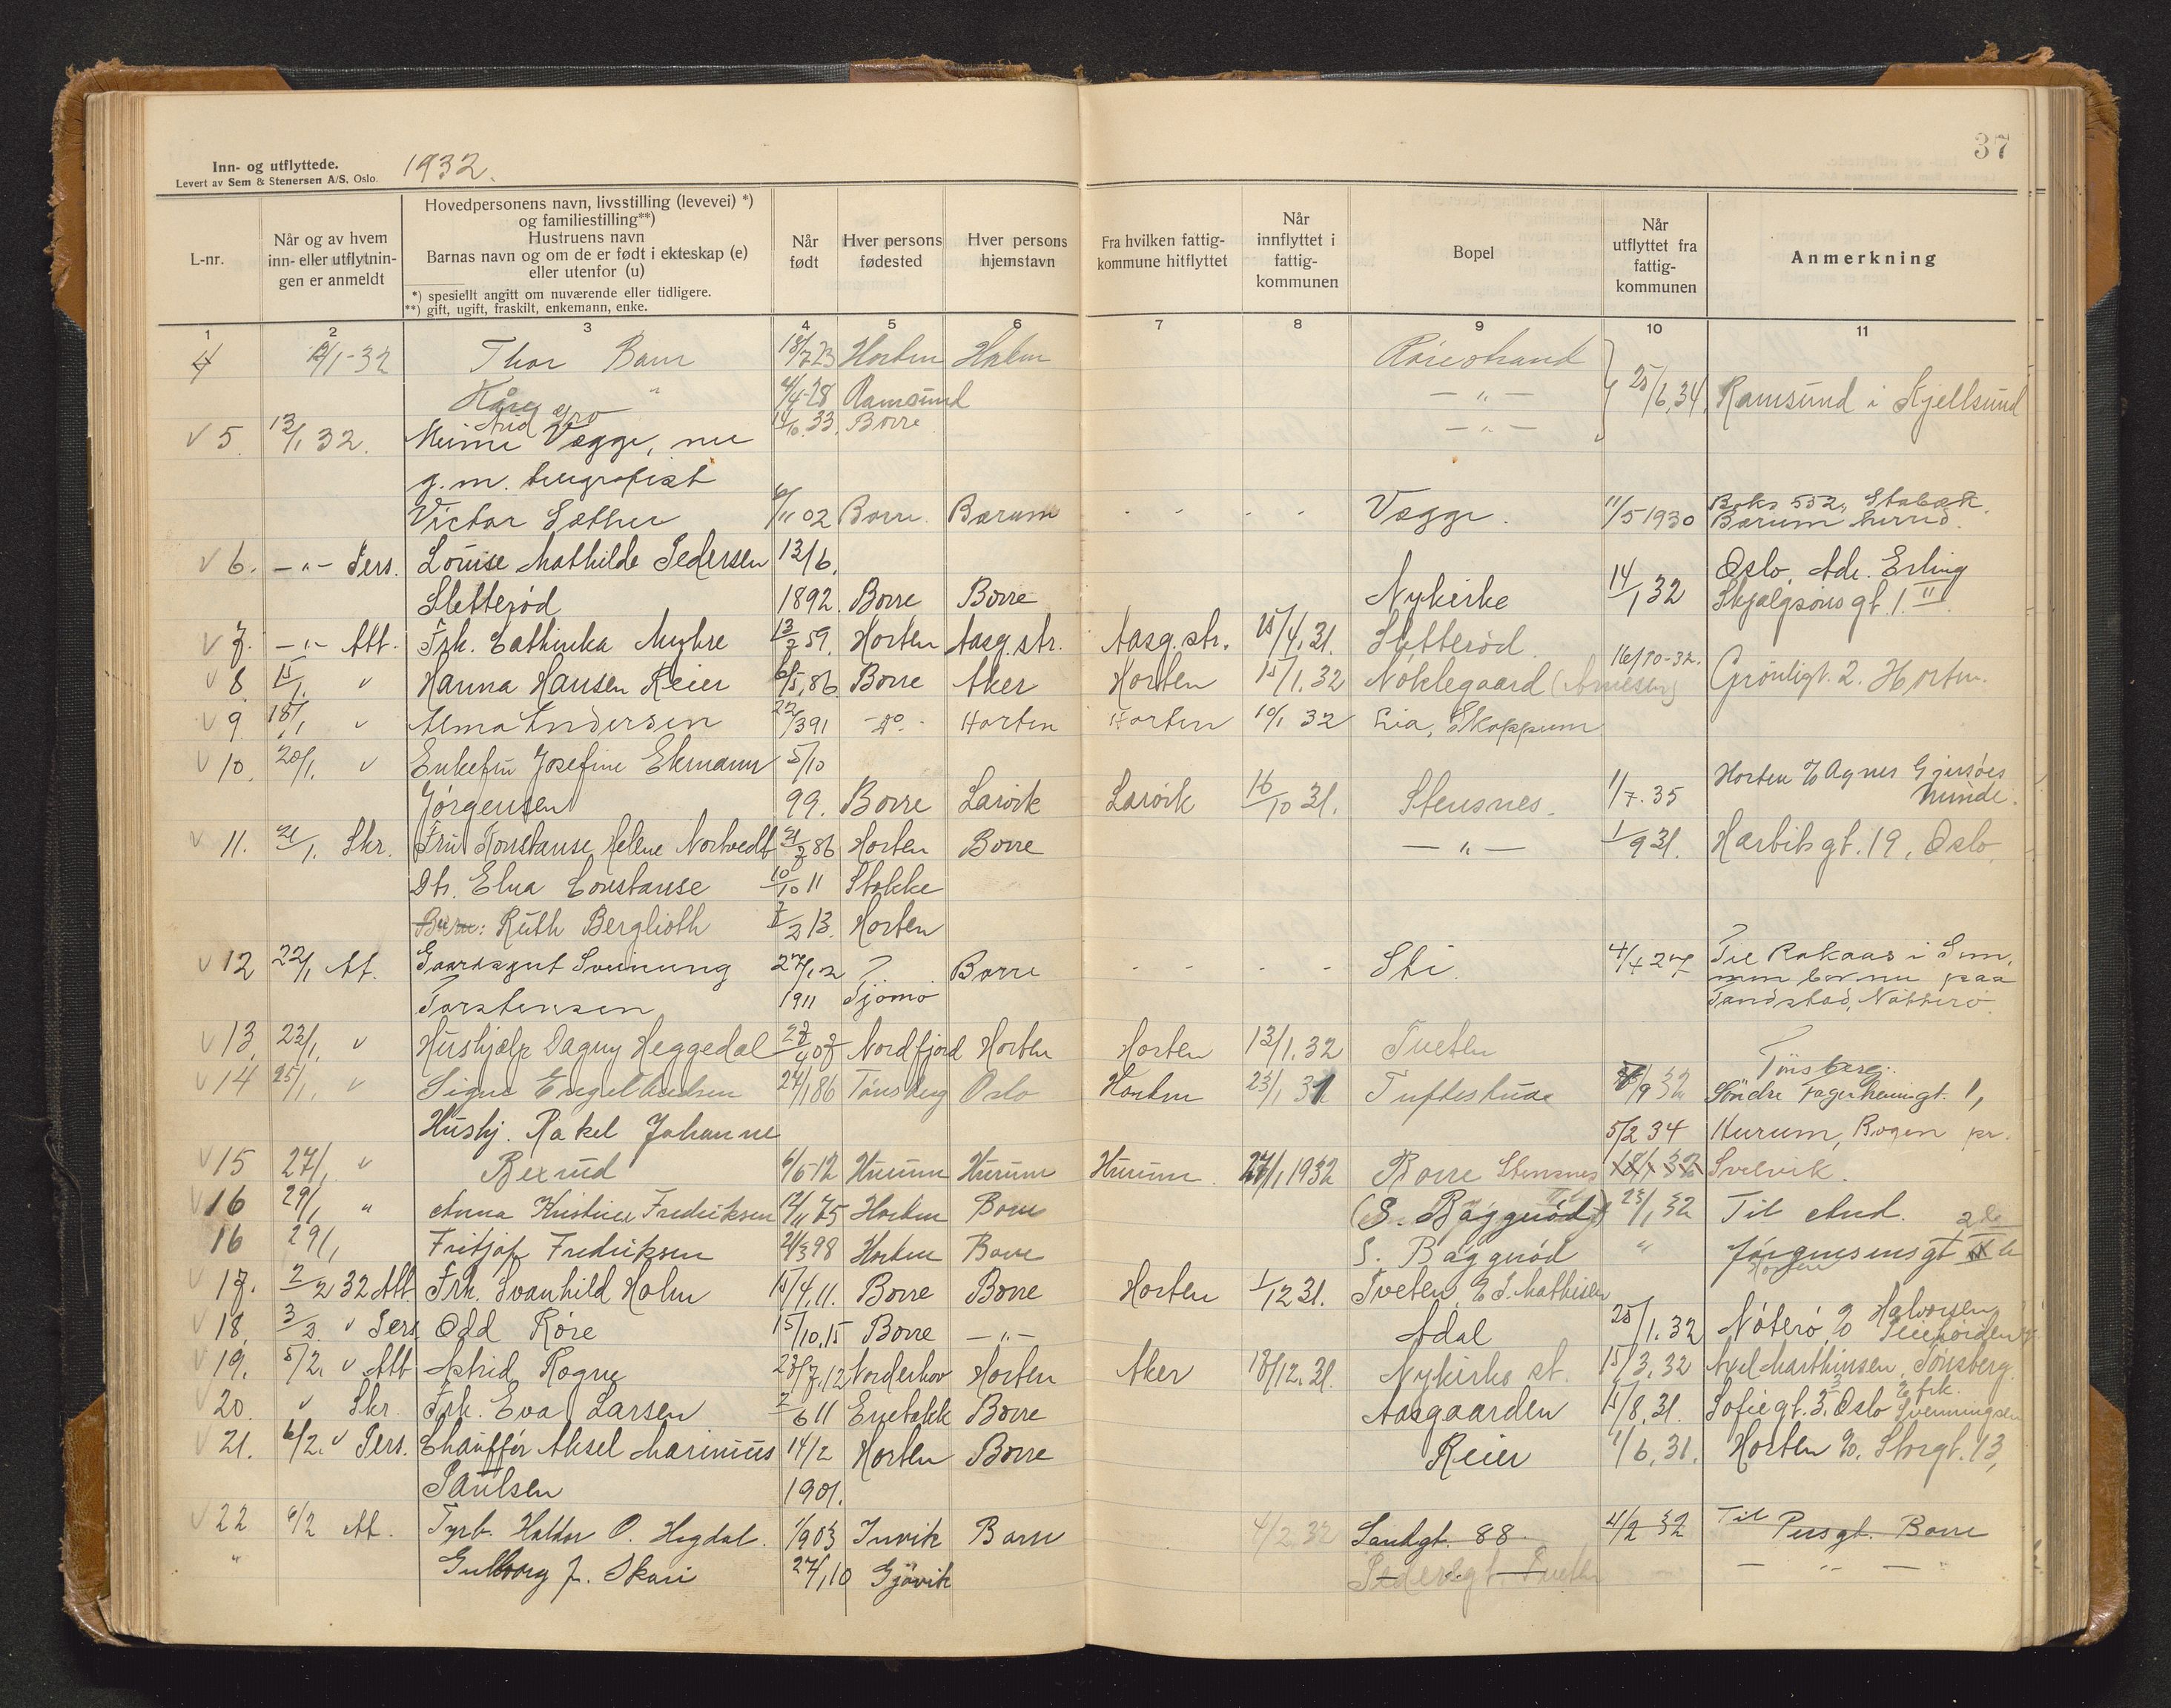 37
Inn- og utflyttede.
Levert av Sem & Stenersen A/S. Oslo.
1932.
L-nr.
Når og av hvem inn- eller utflytnin- gen er anmeldt
Hovedpersonens navn, livsstilling (levevei) *)
og familiestilling**)
Hustruens navn
Barnas navn og om de er født i ekteskap (e)
eller utenfor (u)
*) spesielt angitt om nuværende eller tidligere.
**) gift, ugift, fraskilt, enkemann, enke.
Når født
Hver persons fødested
Hver persons hjemstavn
Fra hvilken fattig- kommune hitflyttet
Når innflyttet i fattig- kommunen
Bopel
Når utflyttet fra fattig- kommunen
Anmerkning
1 2 3 4 5 6 7 8 9 10 11
4 /1-32 Thor 18/7 23 Horten
Kåre " 4/4-28 Ramsund — " — 25/6.34 Ramsund i Kjellsund
Gro 33. Borre — " —
v 5. 13/1 32. Vegge, nu
g.m. telegrafist
Victor Sæther 6/11 02 Borre. Bærum - - - - Vegge. 11/5 1930 Boks 552, Stabæk, Bærum herred.
v 6. — " — Pers. Louise Mathilde Pedersen 13/6.
Sletterød 1892. Borre Borre Nykirke 14/1 32 Oslo. Adr. Erling Skjalgsøns gt. 1 II
v 7. — " — Att. Frk. Cathinka Myhre 59. Horten Aasg. str. Aasg. str. 15/4.31. Sletterød.
v 8. 15/1. v Hanna Hansen Reier 6/5.86 Borre Aker Horten 15/1.32 Nøklegaard (Arnesen) 16/10-32. Grønligt. 2. Horten.
v 9. 18/1 v Alma Andersen 22/3 91 - do - Horten Horten 10/1 32 Lia, Skoppum
v 10. 20/1. v Enkefru Josefine Ekmann 5/10
Jørgensen 99. Borre Larvik Larvik 16/10 31. Stensnes. 1/7.35 Horten % Agnes Gjersøes minde.
v 11. 21/1. Skr. Fru Konstanse Helene Nortvedt 86 Horten Borre — " — 1/9 31. Harbitsgt. 19, Oslo.
Dtr. Elna Constanse 10/10 11 Stokke
Barn: Ruth Berglioth 13. Horten
v 12 22/1 At. Gaardsgut Sveinung 27/12 ? Borre - - - - Sti. 4/4 27 Til Rakaas i Sem, men bor nu paa
Torstensen 1911 Tjømø Nøtterø.
v 13 23/1. v Hushjælp Dagny Heggedal 07 Nordfjord Horten Horten 13/1.32 Tveten
v 14 25/1. v Signe Engelbretsen 24/1 86 Tønsberg Oslo Horten 23/1 31 Tuftestua /9 32 Tønsberg. Søndre Fagerheimgt. 1,
Hushj. Rakel Johanne 5/2 34 Hurum, Bogen pr.
v 15 27/1 v Rexrud 6/6-12 Hurum Hurum Hurum 27/1 1932 Borre Stensnes Svelvik.
v 16 29/1 " Anna Kristine Fredriksen 12/11 75 Horten Borre (S. Baggerød) 23/1 32 Til And.
16 29/1 Fritjof Fredriksen 98 Horten Borre S. Baggerød " Jørgensensgt
v 17. 2/2 32 Att. Frk. Svanhild Holm 15/4.11. Borre Borre Horten 1/12 31. Tveten, % S. Mathisen
v 18. v Pers. Odd Røre 15/10.15 Borre — " — Adal 25/1.32 Nøterø % Halvorsen
v 19. 5/2. v Att. Astrid Rogne 23/7.12 Norderhov Horten Aker 18/12.31. Nykirke st. 15/3.32 Axel Marthinsen, Tønsberg.
v 20. v Skr. Frk. Eva Larsen 2/6 11 Enebakk Borre Aasgaarden 15/8.31. Sofiegt. 3. Oslo % frk. Svenningsen
v 21. 6/2. v Pers. Chauffør Aksel Marinius 14/2 Horten Borre Reier 1/6.31. Horten %. Storgt. 13,
Paulsen 1901.
v 22 6/2 At. Halder O. Hegdal. 1/9 03 Invik Borre 4/2 32 Sandgt. 88. 4/2 32 Til Borre
" Gulborg f. Skari 27/1 10 Gjövik — " —